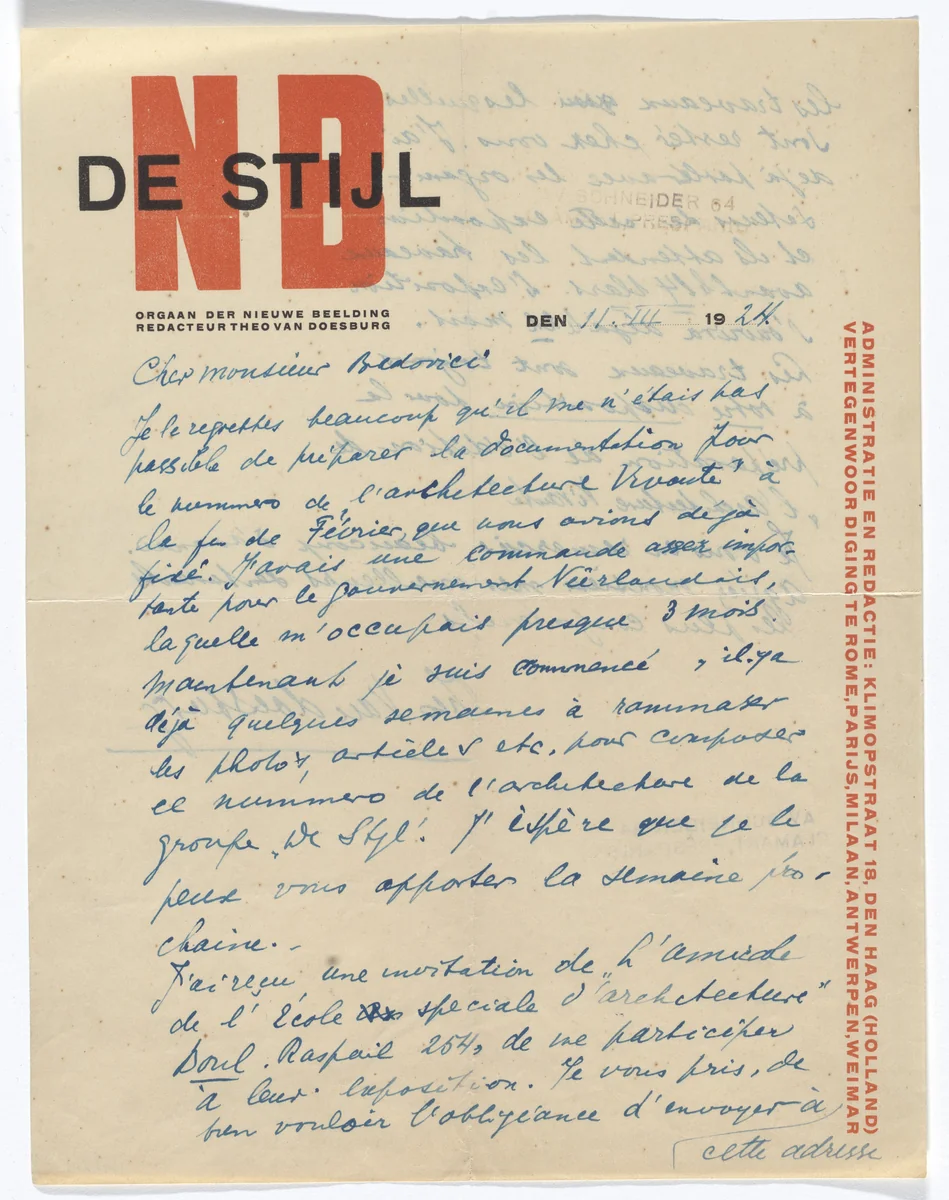 ND
DE STIJL
ORGAAN DER NIEUWE BEELDING
REDACTEUR THEO VAN DOESBURG
DEN 11. III 1924.
SCHNEIDER 64
Cher monsieur Badovici
Je le regrettes beaucoup qu'il me n'étais pas
possible de préparer la documentation pour
le nummero de „l'architecture Vivante" à
la fin de Février, que nous avions déjà
fixé. J'avais une commande assez impor-
tante pour le gouvernement Néerlandais,
laquelle m'occupais presque 3 mois.
Maintenant je suis commencé , il.ya
déjà quelques semaines à rammaser
les photo's, articles etc. pour composer
ce nummero de l'architecture de la
groupe „De Styl". J'éspère que je le
peux vous apporter la semaine pro-
chaine. -
J'ai reçu une invitation de „L'amicale
de l'École speciale d'architecture"
Boul. Raspail 254, de me participer
à leur exposition. Je vous pris, de
bien vouloir l'obligeance d'envoyer à
cette adresse
ADMINISTRATIE EN REDACTIE: KLIMOPSTRAAT 18, DEN HAAG (HOLLAND)
VERTEGENWOORDIGING TE ROME, PARIJS, MILAAN, ANTWERPEN, WEIMAR